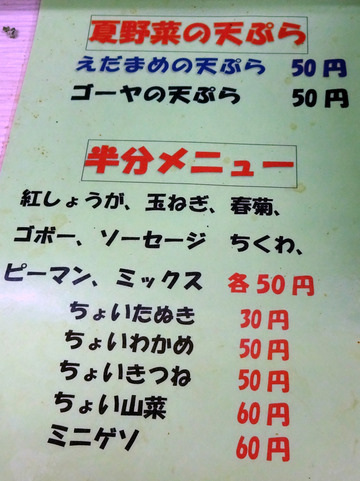 夏野菜の天ぷら
えだまめの天ぷら 50円
ゴーヤの天ぷら 50円
半分メニュー
紅しょうが、玉ねぎ、春菊、
ゴボー、ソーセージ ちくわ、
ピーマン、ミックス 各50円
ちょいたぬき 30円
ちょいわかめ 50円
ちょいきつね 50円
ちょい山菜 60円
ミニゲソ 60円